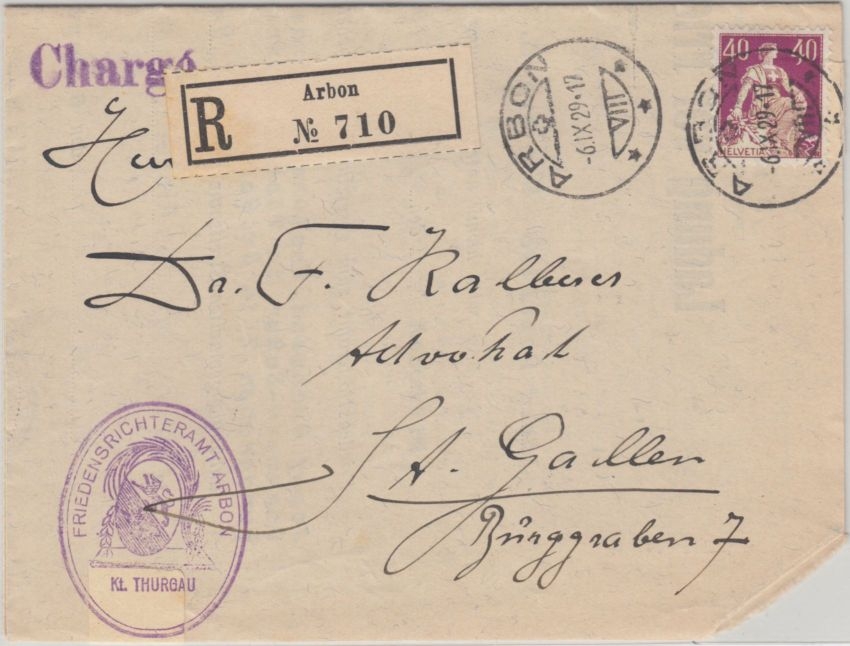 Chargé
R
Arbon
№ 710
ARBON
-6.IX.29-17
VIII
40 40
HELVETIA
ARBON
-6.IX.29-17
Dr. F. Kalberer
Advokat
St. Gallen
Burggraben 7
FRIEDENSRICHTERAMT ARBON
Kt. THURGAU